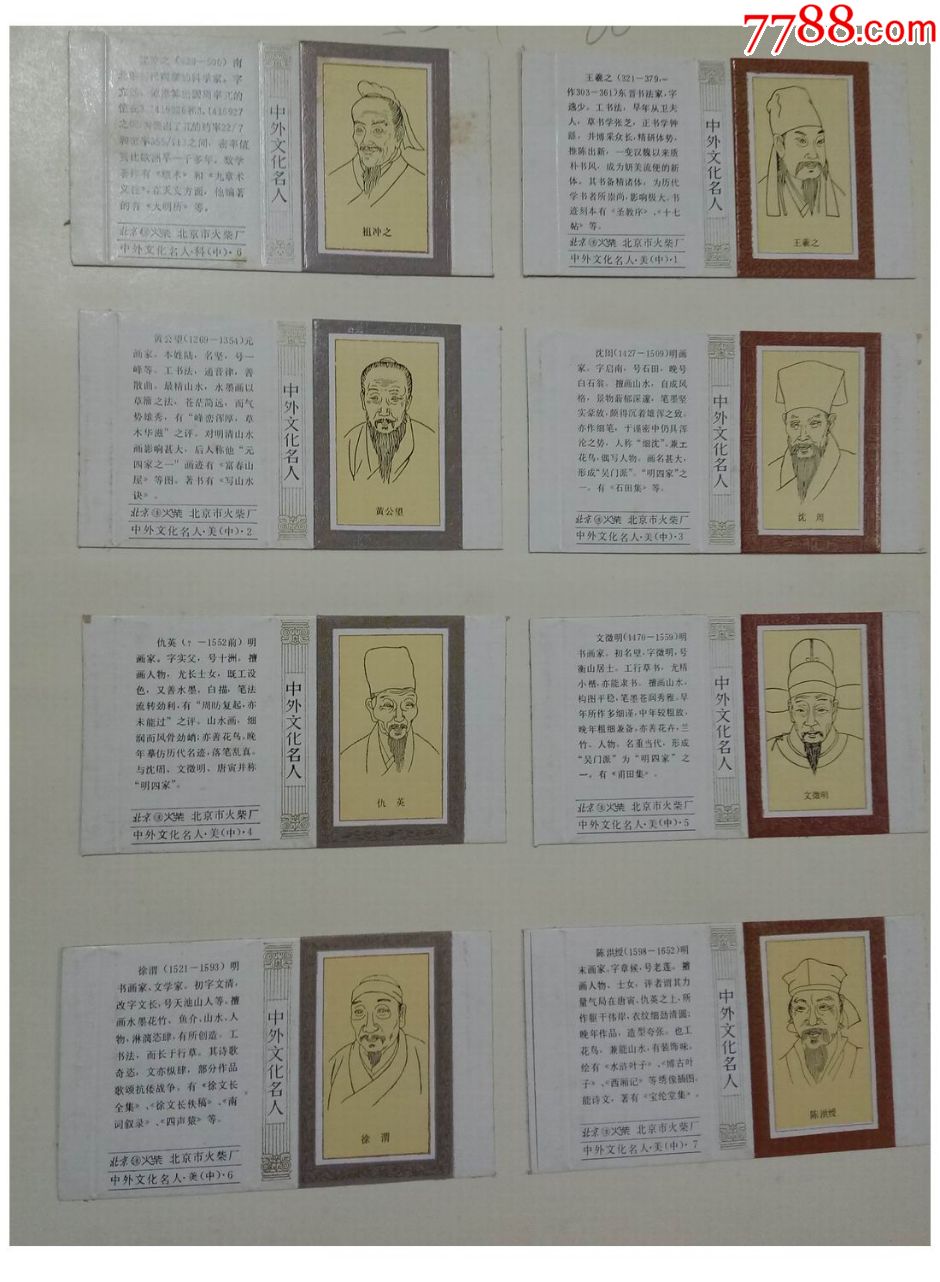 7788.com
祖冲之(429－500)南
北朝时代南朝的科学家。字
文远。推算出圆周率π的
值在3.1415926和3.1415927
之间,并提出了π的约率22/7
和密率355/113之间,密率值
要比欧洲早一千多年。数学
著作有《缀术》和《九章术
义注》。在天文方面,他编著
的有《大明历》等。
北京火柴 北京市火柴厂
中外文化名人·科(中)·6
中外文化名人
祖冲之
王羲之(321－379,一
作303－361)东晋书法家,字
逸少。工书法,早年从卫夫
人,草书学张芝,正书学钟
繇,并博采众长,精研体势,
推陈出新,一变汉魏以来质
朴书风,成为妍美流便的新
体。其书备精诸体,为历代
学书者所崇尚,影响极大。书
迹刻本有《圣教序》、《十七
帖》等。
北京火柴 北京市火柴厂
中外文化名人·美(中)·1
中外文化名人
王羲之
黄公望(1269－1354)元
画家。本姓陆,名坚,号一
峰等。工书法,通音律,善
散曲。最精山水,水墨画以
草籀之法,苍茫简远,而气
势雄秀,有“峰峦浑厚,草
木华滋”之评。对明清山水
画影响甚大,后人称他“元
四家之一”画迹有《富春山
居》等图。著书有《写山水
诀》。
北京火柴 北京市火柴厂
中外文化名人·美(中)·2
中外文化名人
黄公望
沈周(1427－1509)明画
家。字启南,号石田,晚号
白石翁。擅画山水,自成风
格,景物蓊郁深邃,笔墨坚
实豪放,颇得沉着雄浑之致。
亦作细笔,于谨密中仍具浑
沦之势,人称“细沈”。兼工
花鸟,偶写人物。画名甚大,
形成“吴门派”。“明四家”之
一。有《石田集》等。
北京火柴 北京市火柴厂
中外文化名人·美(中)·3
中外文化名人
沈 周
仇英(?－1552前)明
画家。字实父,号十洲。擅
画人物,尤长士女,既工设
色,又善水墨、白描,笔法
流转劲利,有“周昉复起,亦
未能过”之评。山水画,细
润而风骨劲峭;亦善花鸟。晚
年摹仿历代名迹,落笔乱真。
与沈周、文徵明、唐寅并称
“明四家”。
北京火柴 北京市火柴厂
中外文化名人·美(中)·4
中外文化名人
仇 英
文徵明(1470－1559)明
书画家。初名壁,字徵明,号
衡山居士。工行草书,尤精
小楷,亦能隶书。擅画山水,
构图平稳,笔墨苍润秀雅。早
年所作多细谨,中年较粗放,
晚年粗细兼备,亦善花卉,兰
竹、人物。名重当代,形成
“吴门派”为“明四家”之
一。有《甫田集》。
北京火柴 北京市火柴厂
中外文化名人·美(中)·5
中外文化名人
文徵明
徐渭(1521－1593)明
书画家、文学家。初字文清,
改字文长,号天池山人等。擅
画水墨花竹、鱼介、山水、人
物,淋漓恣肆,有所创造。工
书法,而长于行草。其诗歌
奇恣,文亦纵肆,部分作品
歌颂抗倭战争。有《徐文长
全集》、《徐文长佚稿》、《南
词叙录》、《四声猿》等。
北京火柴 北京市火柴厂
中外文化名人·美(中)·6
中外文化名人
徐 渭
陈洪绶(1598－1652)明
末画家。字章候,号老莲。擅
画人物、士女,评者谓其力
量气局在唐寅、仇英之上,所
作躯干伟岸,衣纹细劲清圆;
晚年作品,造型夸张。也工
花鸟,兼能山水,有装饰味,
绘有《水浒叶子》、《博古叶
子》、《西厢记》等绣像插图,
能诗文,著有《宝纶堂集》。
北京火柴 北京市火柴厂
中外文化名人·美(中)·7
中外文化名人
陈洪绶